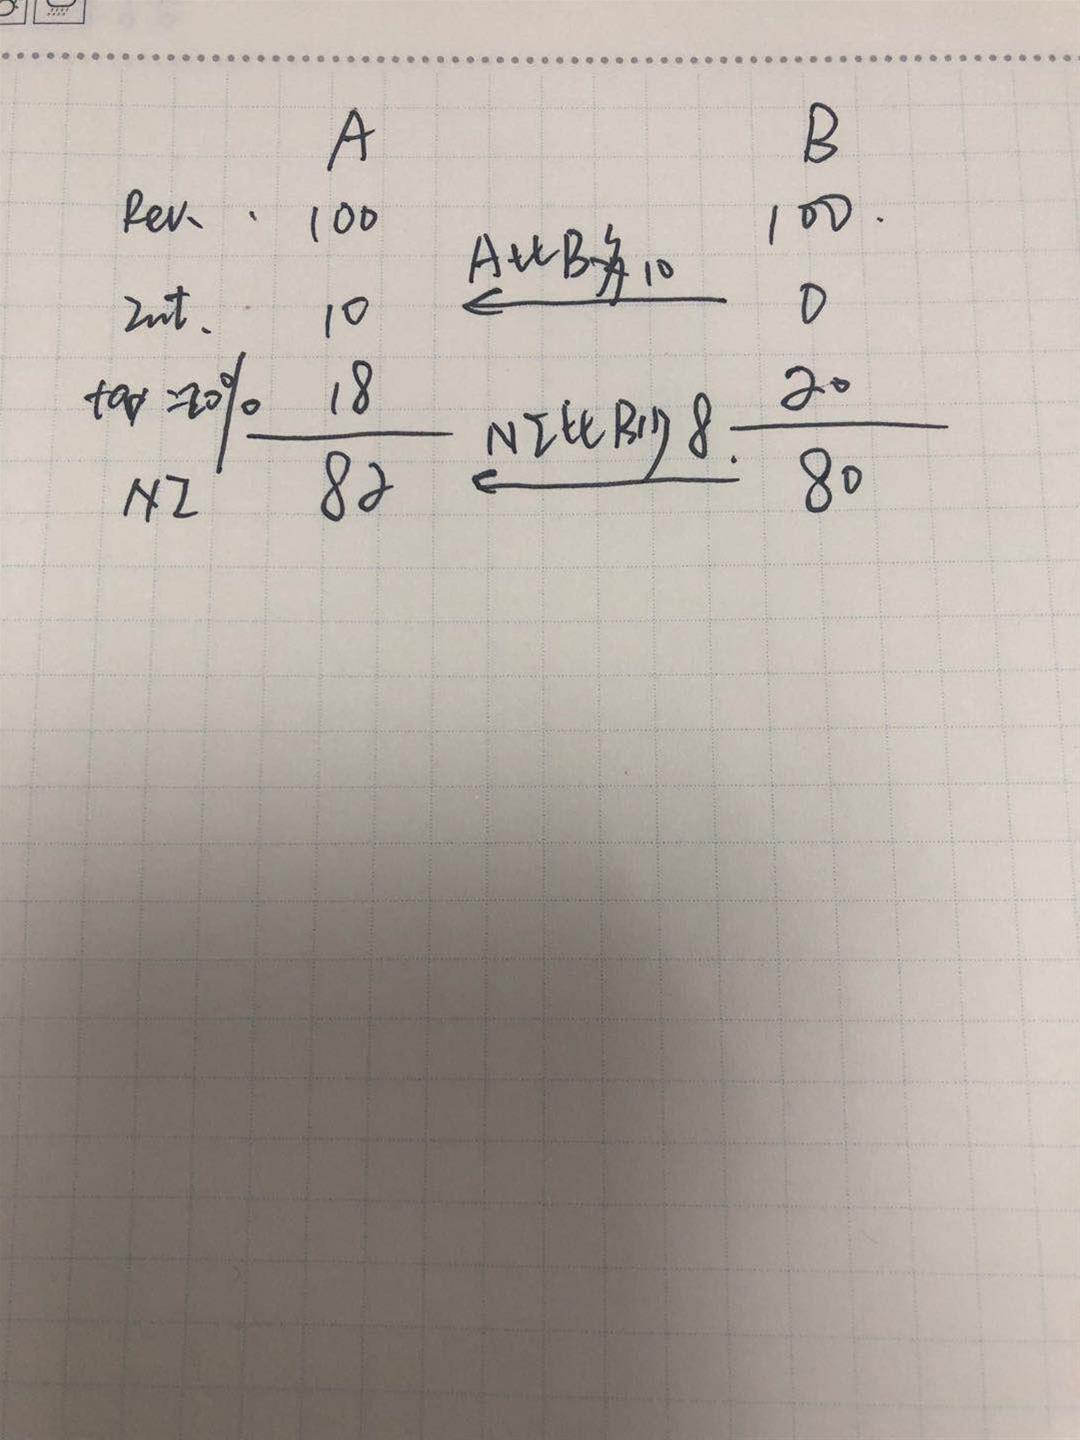 A B
Rev. 100 100.
A比B多10
Int. 10 0
tax=20% 18 20
NI比B少8.
NI 82 80